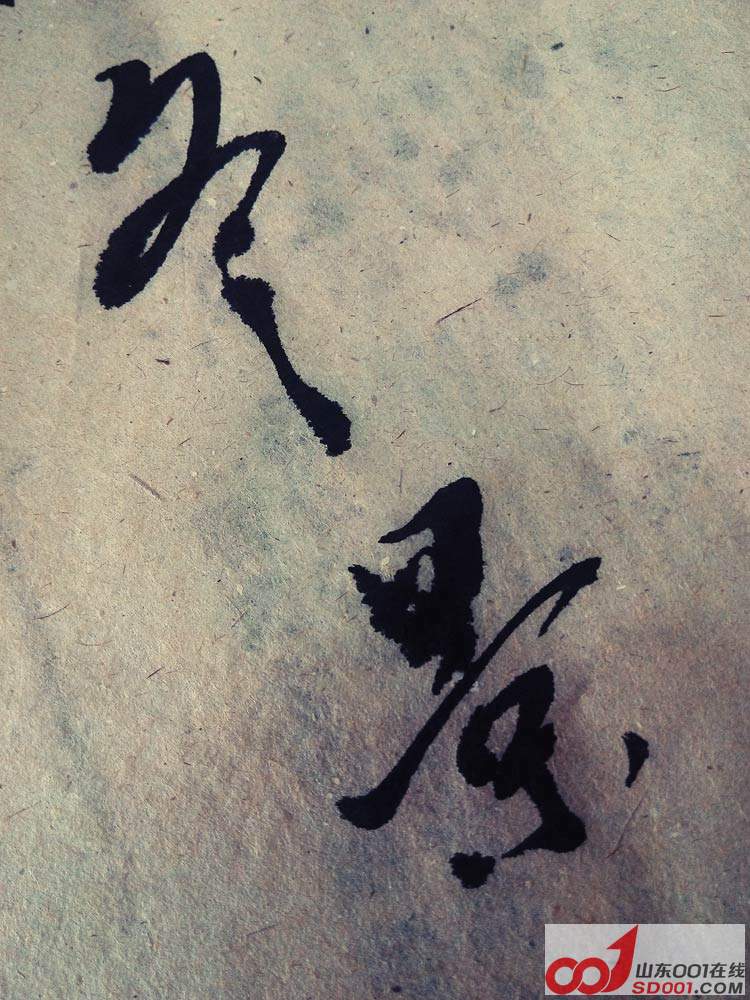 冬
景
山东001在线
SD001.COM